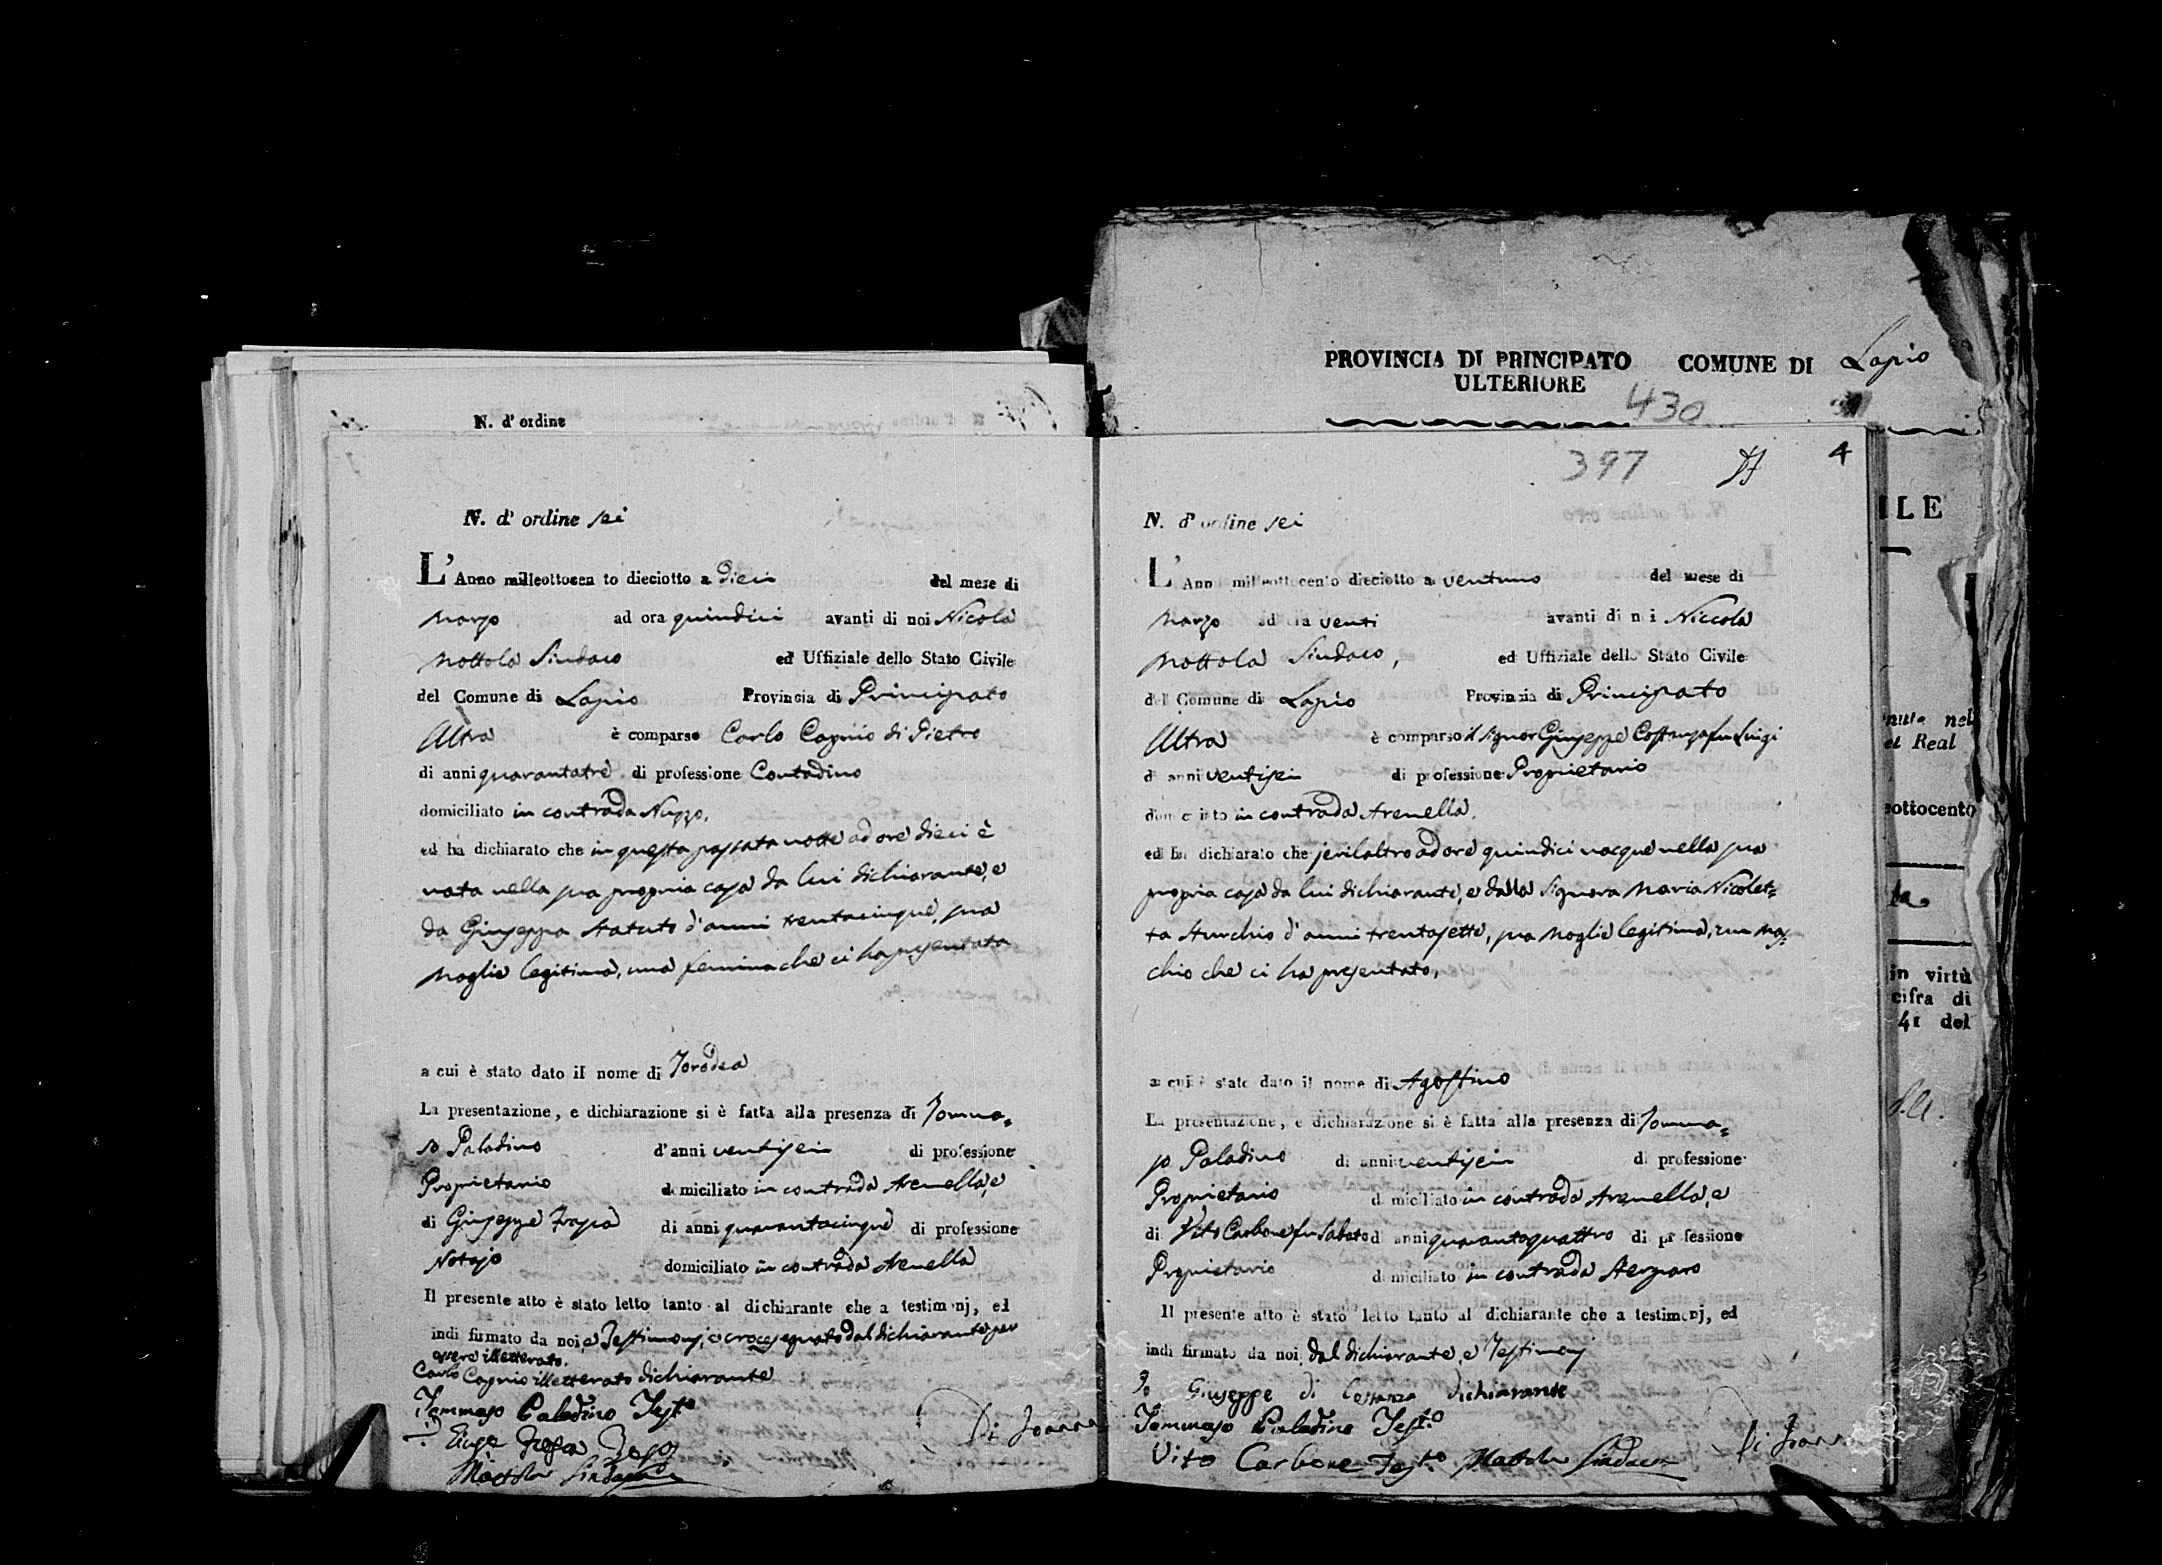 N. d' ordine
N. d' ordine sei
L' Anno milleottocen to dieciotto a dieci del mese di
Marzo ad ora quindici avanti di noi Nicola
Mottola Sindaco ed Uffiziale dello Stato Civile
del Comune di Lapio Provincia di Principato
Ultra è comparso Carlo Caprio di Pietro
di anni quarantatre di professione Contadino
domiciliato in contrada Nuzzo,
ed ha dichiarato che in questa passata notte ad ore dieci è
nata nella sua propria casa da lui dichiarante, e
da Giuseppa Statuto d'anni trentacinque, sua
Moglie legitima, una femina che ci ha presentata
a cui è stato dato il nome di
La presentazione, e dichiarazione si è fatta alla presenza di Tomma=
so Paladino d'anni ventisei di professione
Proprietario domiciliato in contrada Arenella, e
di Giuseppe di anni quarantacinque di professione
Notajo domiciliato in contrada Arenella
Il presente atto è stato letto tanto al dichiarante che a testimonj, ed
indi firmato da noi, e Testimonj, e crocesegnato dal dichiarante per
essere illetterato.
Carlo Caprio illetterato dichiarante
Tommaso Paladino Test.o
Mottola Sindaco
PROVINCIA DI PRINCIPATO COMUNE DI Lapio
ULTERIORE
430
397 4
N. d' ordine sei
L' Anno milleottocento dieciotto a ventuno del mese di
Marzo ad ora venti avanti di noi Niccola
Mottola Sindaco, ed Uffiziale dello Stato Civile
del Comune di Lapio Provincia di Principato
Ultra è comparso il Signor Giuseppe Costanza fu Luigi
di anni ventisei di professione Proprietario
domiciliato in contrada Arenella,
ed ha dichiarato che jeri l altro ad ore quindici nacque nella sua
propria casa da lui dichiarante, e dalla Signora Maria Nicolet=
ta Sturchio d'anni trentasette, sua Moglie legitima, un Mas=
chio che ci ha presentato,
a cui è stato dato il nome di Agostino
La presentazione, e dichiarazione si è fatta alla presenza di Tomma=
so Paladino di anni ventisei di professione
Proprietario domiciliato in contrada Arenella, e
di Vito Carbone fu Sabato di anni quarantaquattro di professione
Proprietario domiciliato in contrada
Il presente atto è stato letto tanto al dichiarante che a testimonj, ed
indi firmato da noi, dal dichiarante, e Testimonj
Io Giuseppe di Costanza dichiarante
Tommaso Paladino Test.o
Vito Carbone Test.o Mottola Sindaco
ILE
nute nel
ei Real
eottocento
in virtù
cifra di
41 del